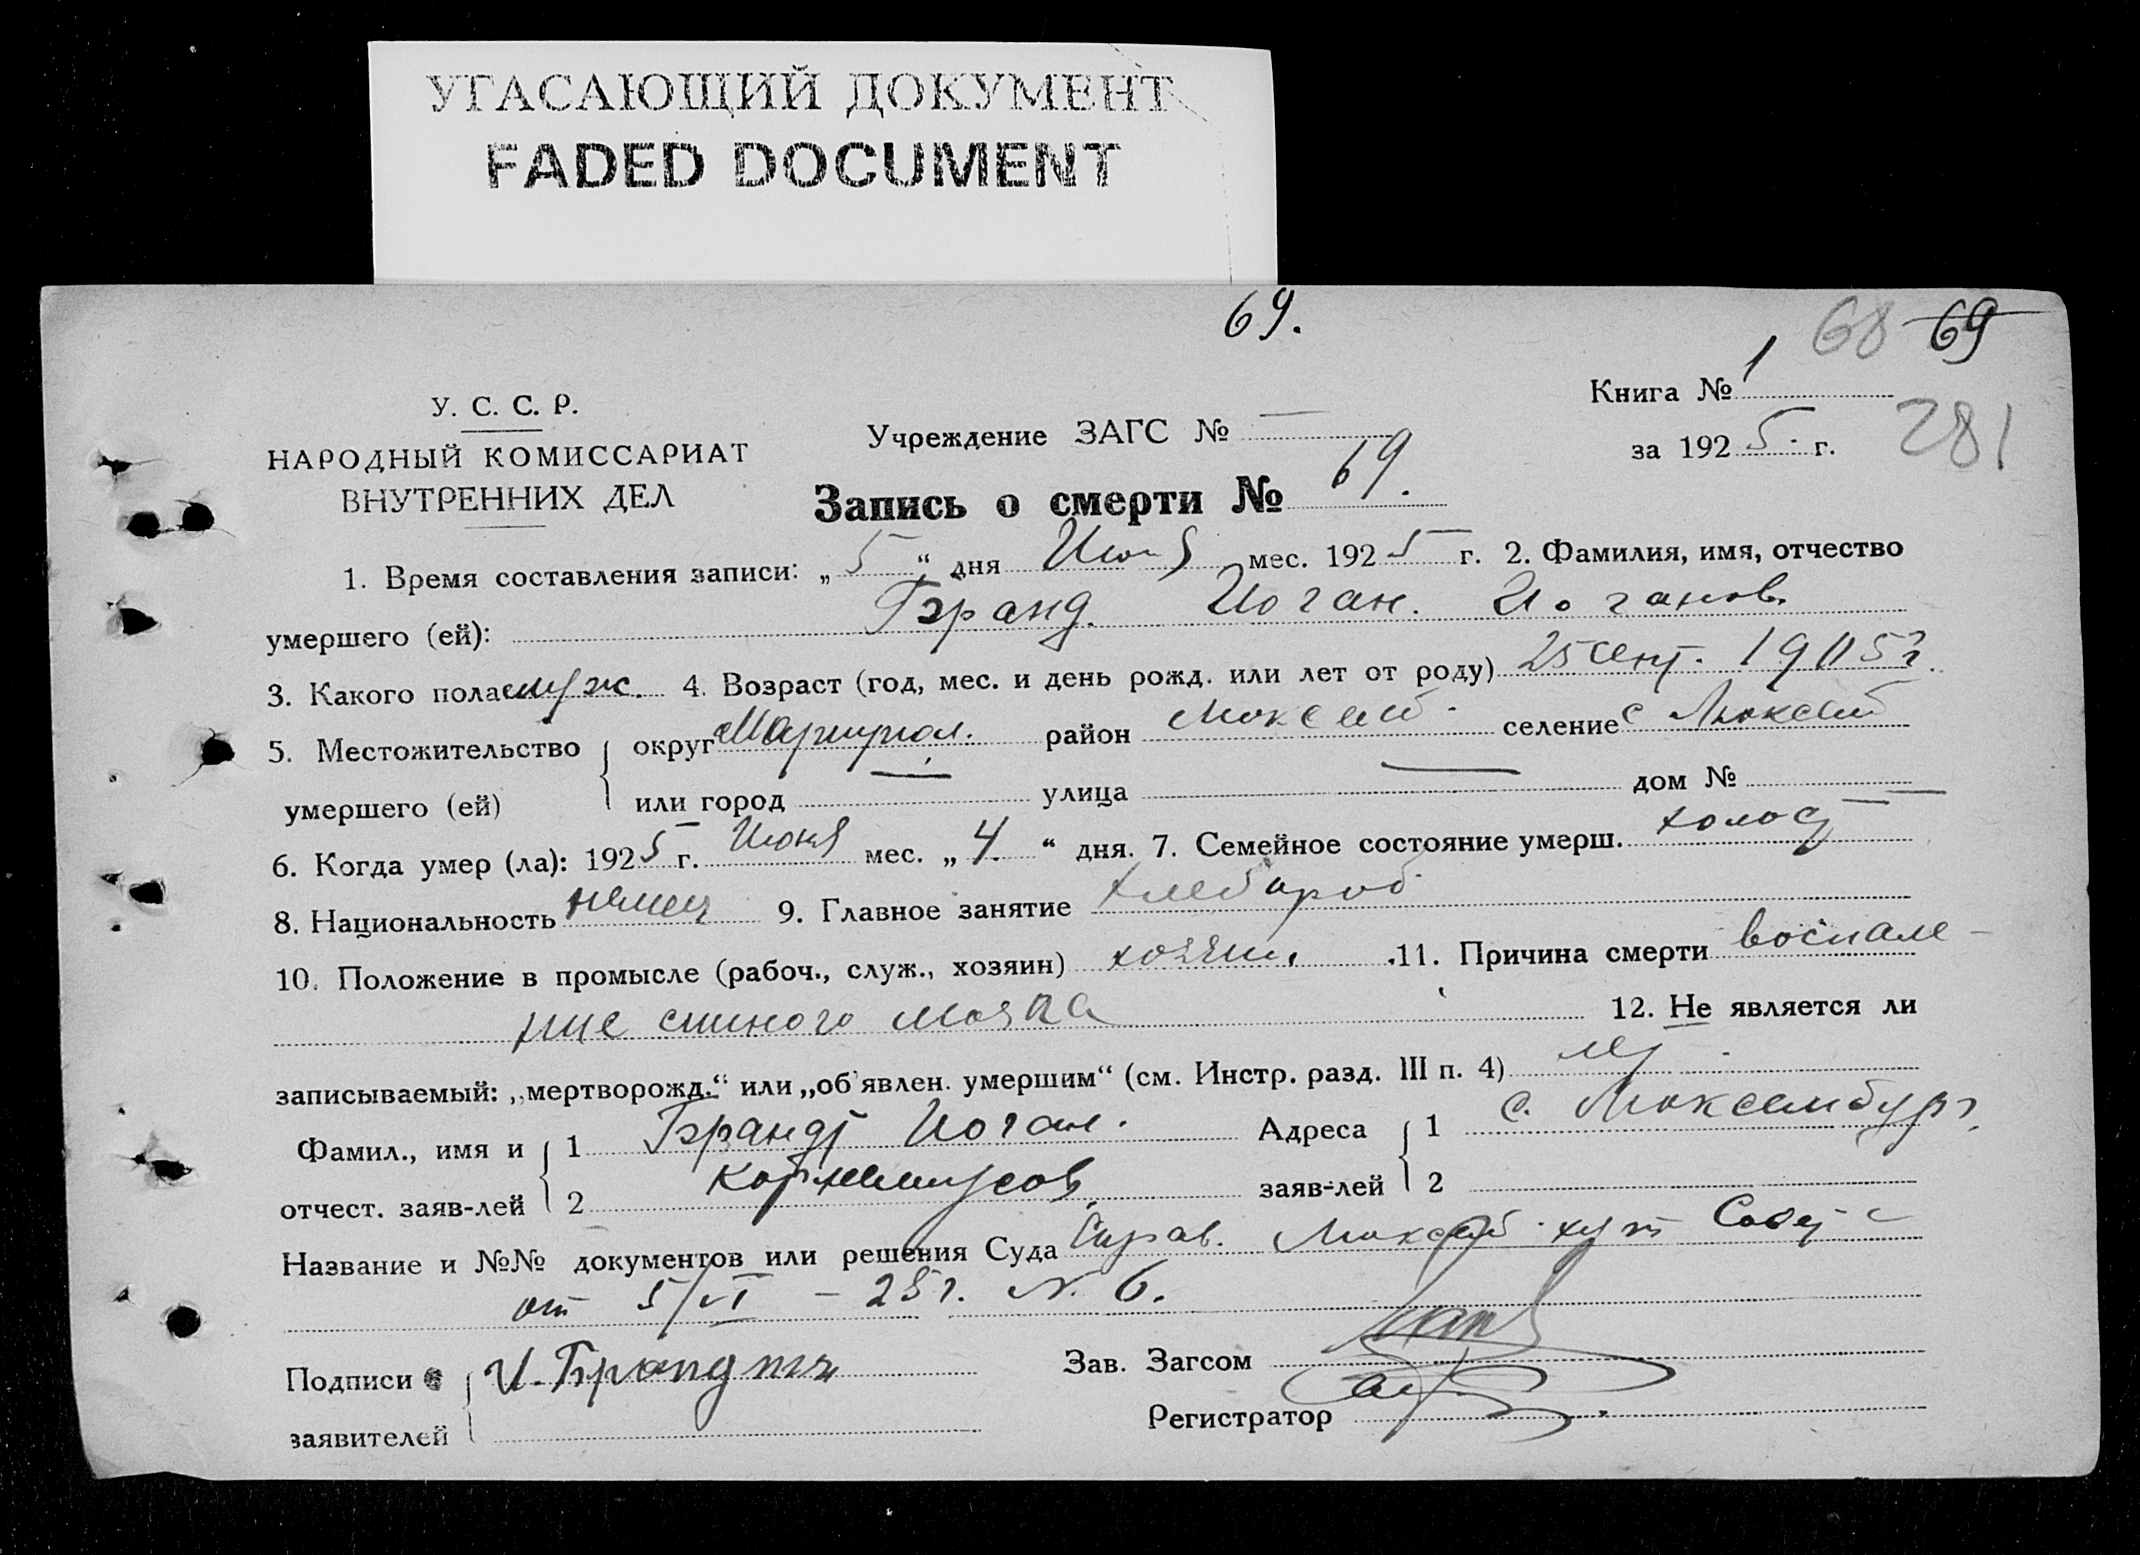 УГАСАЮЩИЙ ДОКУМЕНТ
FADED DOCUMENT
69.
68 69
Книга № 1
281
У. С. С. Р.
Учреждение ЗАГС № —
за 1925 г.
НАРОДНЫЙ КОМИССАРИАТ
ВНУТРЕННИХ ДЕЛ
Запись о смерти № 69.
1. Время составления записи: „5“ дня мес. 1925 г. 2. Фамилия, имя, отчество
умершего (ей): Бранд. Иоган. Иоганов.
3. Какого пола муж. 4. Возраст (год, мес. и день рожд. или лет от роду) 25 сент. 1905 г.
5. Местожительство округ Мариупол. район Люксемб. селение с Люксемб
умершего (ей) или город — улица — дом № —
6. Когда умер (ла): 1925 г. Июня мес. „4.“ дня. 7. Семейное состояние умерш. холост
8. Национальность немец 9. Главное занятие хлебороб
10. Положение в промысле (рабоч., служ., хозяин) хозяин. 11. Причина смерти воспале-
ние спиного мозга 12. Не является ли
записываемый: „мертворожд.“ или „об'явлен. умершим“ (см. Инстр. разд. III п. 4) нет.
Фамил., имя и 1 Брандт Иоган. Адреса 1 с. Люксембург.
отчест. заяв-лей 2 заяв-лей 2
Название и №№ документов или решения Суда Справ. Люксемб. хут Совета
от 5/VI – 25 г. N. 6.
Подписи И. Брандтъ Зав. Загсом
заявителей Регистратор